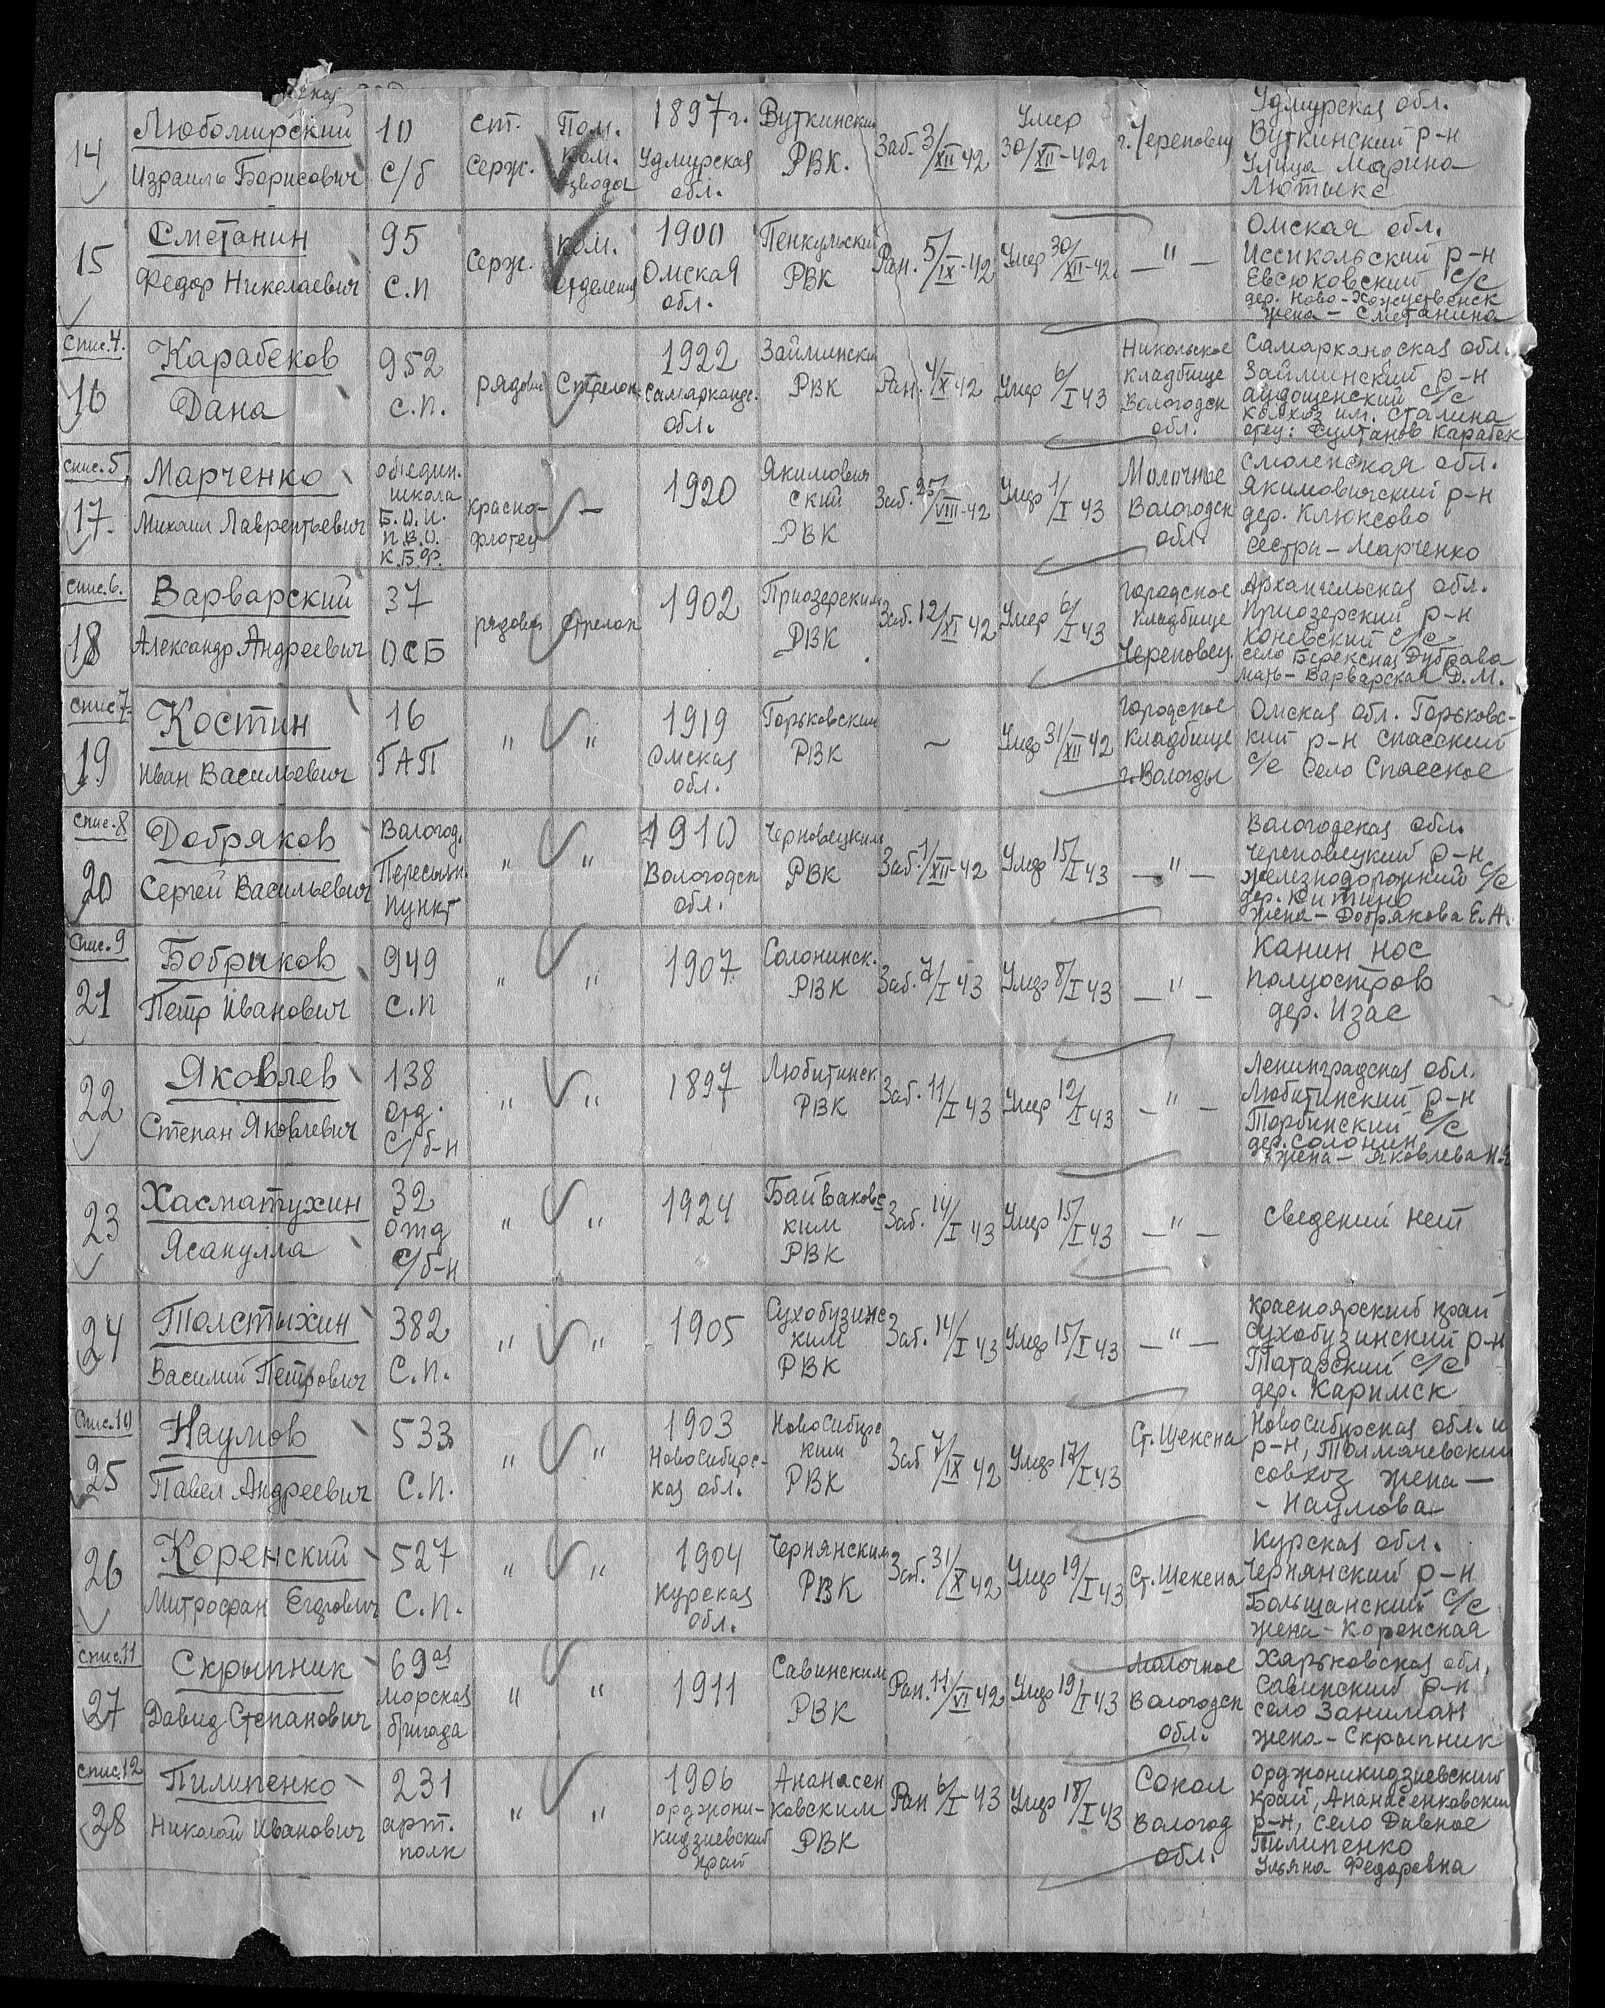 14
Любомирский
Израиль Борисович
10
с/б
ст.
серж.
Пом.
ком.
взвода
1897 г.
Удмурская
обл.
Вуткинский
РВК.
Заб. 3/XII 42
Умер
30/XII-42 г
г. Череповец
Удмурская обл.
Вуткинский р-н
Улица Марина
15
Сметанин
Федор Николаевич
95
с.п
Серж.
ком.
отделения
1900
Омская
обл.
Пенкульский
РВК
Ран. 5/IX-42
Умер 30/XII-42
— " —
Омская обл.
Иссикольский р-н
Евсюковский с/с
жена - Сметанина
Спис. 4.
16
Карабеков
Дана
952
с.п.
рядовой
Стрелок
1922
Самарканд.
обл.
Займинский
РВК
Ран. 4/X 42
Умер 6/I 43
Никольское
кладбище
Вологодск
обл.
Самаркандская обл.
Займинский р-н
колхоз им. Сталина
отец: Султанов Карабек
спис. 5
17
Марченко
Михаил Лаврентьевич
объедин.
школа
Б.О.И.
П.В.О.
К.Б.Ф.
красно-
флотец
—
1920
Якимович
ский
РВК
Заб. 25/VIII-42
Умер 1/I 43
Молочное
Вологодск
обл.
Смоленская обл.
Якимовичский р-н
дер. Клюксово
сестра - Марченко
спис. 6.
18
Варварский
Александр Андреевич
37
ОСБ
рядовой
Стрелок
1902
Приозерским
РВК
Заб. 12/XI 42
Умер 6/I 43
Городское
кладбище
Череповец.
Архангельская обл.
Приозерский р-н
коневский с/с
село Дуброва
мать - Варварская Д.М.
спис 7.
19
Костин
Иван Васильевич
16
ГАП
"
"
1919
Омская
обл.
Горьковским
РВК
—
Умер 31/XII 42
Городское
кладбище
г. Вологды
Омская обл. Горьковс-
кий р-н спасский
с/с село Спасское
спис. 8
20
Добряков
Сергей Васильевич
Вологод.
Пересыльн.
пункт
"
"
1910
Вологодск
обл.
Черновецким
РВК
Заб. 1/XII-42
Умер 15/I 43
— " —
Вологодская обл.
череповецкий р-н
железнодорожний с/с
дер. Китино
жена - Добрякова Е.А.
Спис. 9
21
Бобриков
Петр Иванович
949
с.п
"
"
1907
Солонинск.
РВК
Заб. 7/I 43
Умер 8/I 43
— " —
Канин нос
полуостров
дер. Изас
22
Яковлев
Степан Яковлевич
138
отд.
с/б-н
"
"
1897
Любитинск
РВК
Заб. 11/I 43
Умер 12/I 43
— " —
Ленинградская обл.
Любитинский р-н
Торбинский с/с
дер. солонин
жена - Яковлева
23
Хасматухин
Ясанулла
32
отд
с/б-н
"
"
1924
Байваковс
ким
РВК
Заб. 14/I 43
Умер 15/I 43
— " —
сведений нет
24
Толстыхин
Василий Петрович
382
с.п.
"
"
1905
Сухобузинс
ким
РВК
Заб. 14/I 43
Умер 15/I 43
— " —
красноярский край
сухобузинский р-н
Татарский с/с
дер. Каримск
Спис. 10
25
Наумов
Павел Андреевич
533
с.п.
"
"
1903
Новосибирс-
кая обл.
Новосибирс
ким
РВК
Заб 7/IX 42
Умер 17/I 43
Ст. Шексна
Новосибирская обл. и
р-н, Толмачевский
совхоз жена —
- Наумова
26
Коренский
Митрофан Егорович
527
с.п.
"
"
1904
Курская
обл.
Чернянским
РВК
Заб. 31/X 42
Умер 19/I 43
Ст. Шексна
Курская обл.
Чернянский р-н
Большанский с/с
жена - Коренская
спис. 11
27
Скрыпник
Давид Степанович
69 ая
морская
бригада
"
"
1911
Савинским
РВК
Ран. 11/VI 42
Умер 19/I 43
Молочное
Вологодск
обл.
Харьковская обл,
Савинский р-н
село Заниман
жена - Скрыпник
спис. 12
28
Пилипенко
Николай Иванович
231
арт.
полк
"
"
1906
орджони-
кидзиевский
край
Ананасен
ковским
РВК
Ран 6/I 43
Умер 18/I 43
Сокол
Вологод
обл.
Орджоникидзиевский
край, Ананасенковский
р-н, село Дивное
Пилипенко
Ульяна Федоровна